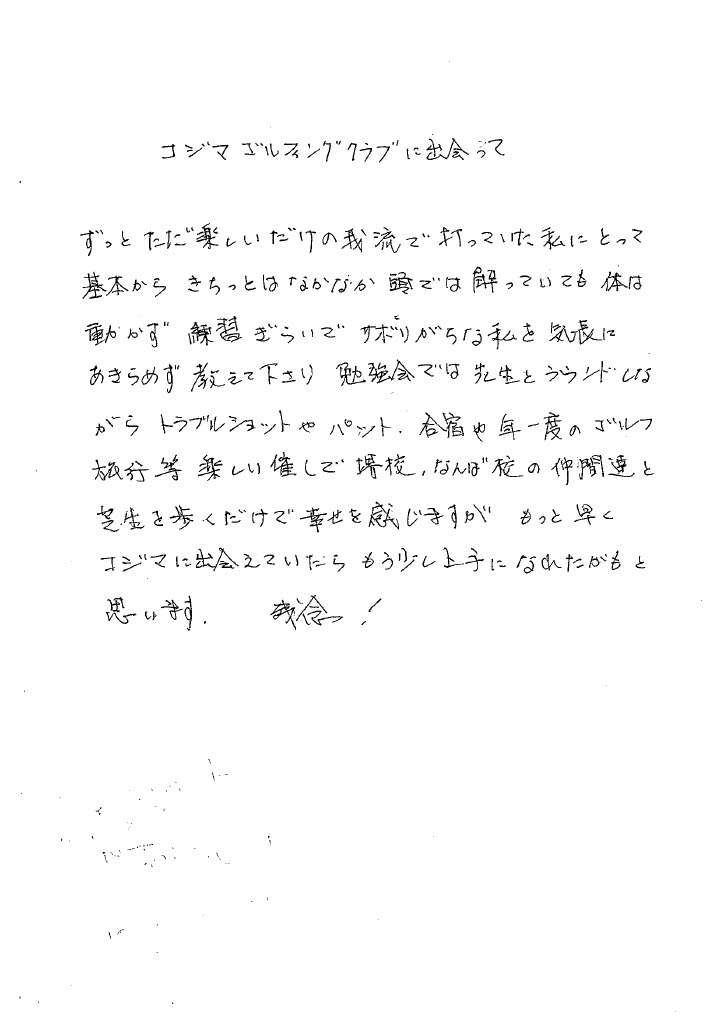 コジマ ゴルフィングクラブに出会って
ずっと ただ楽しいだけの我流で打っていた私にとって
基本から きちっとは なかなか 頭では 解っていても 体は
動かず 練習ぎらいで サボりがちな私を 気長に
あきらめず 教えて下さり 勉強会では 先生とラウンドしな
がら トラブルショットや パット、合宿や 年一度の ゴルフ
旅行等 楽しい催しで 堺校、なんば校の 仲間達と
芝生を歩くだけで 幸せを感じますが もっと早く
コジマに出会えていたら もう少し上手になれたがもと
思います. 残念っ!